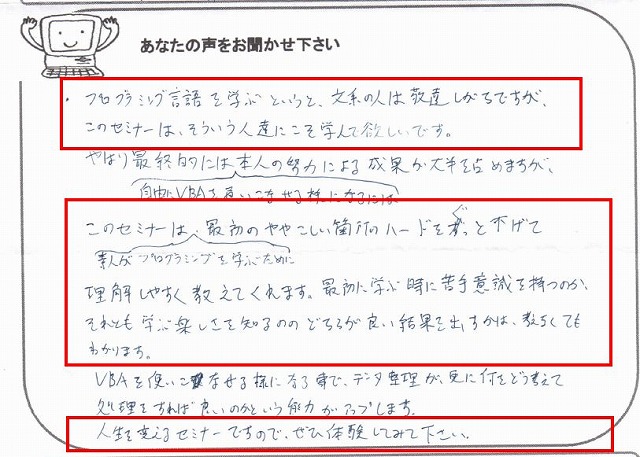 あなたの声をお聞かせ下さい
・プログラミング言語を学ぶというと、文系の人は敬遠しがちですが、
このセミナーは、そういう人達にこそ学んで欲しいです。
やはり最終的には本人の努力による成果が大半を占めますが、
自由にVBAを使いこなせる様になるには
このセミナーは、最初のややこしい箇所のハードをぐっと下げて
素人がプログラミングを学ぶために
理解しやすく教えてくれます。最初に学ぶ時に苦手意識を持つのか、
それとも学ぶ楽しさを知るののどちらが良い結果を出すかは、教えなくても
わかります。
VBAを使いこなせる様になる事で、データ整理が、更に何をどう考えて
処理をすれば良いのかという能力がアップします。
人生を変えるセミナーですので、ぜひ体験してみて下さい。